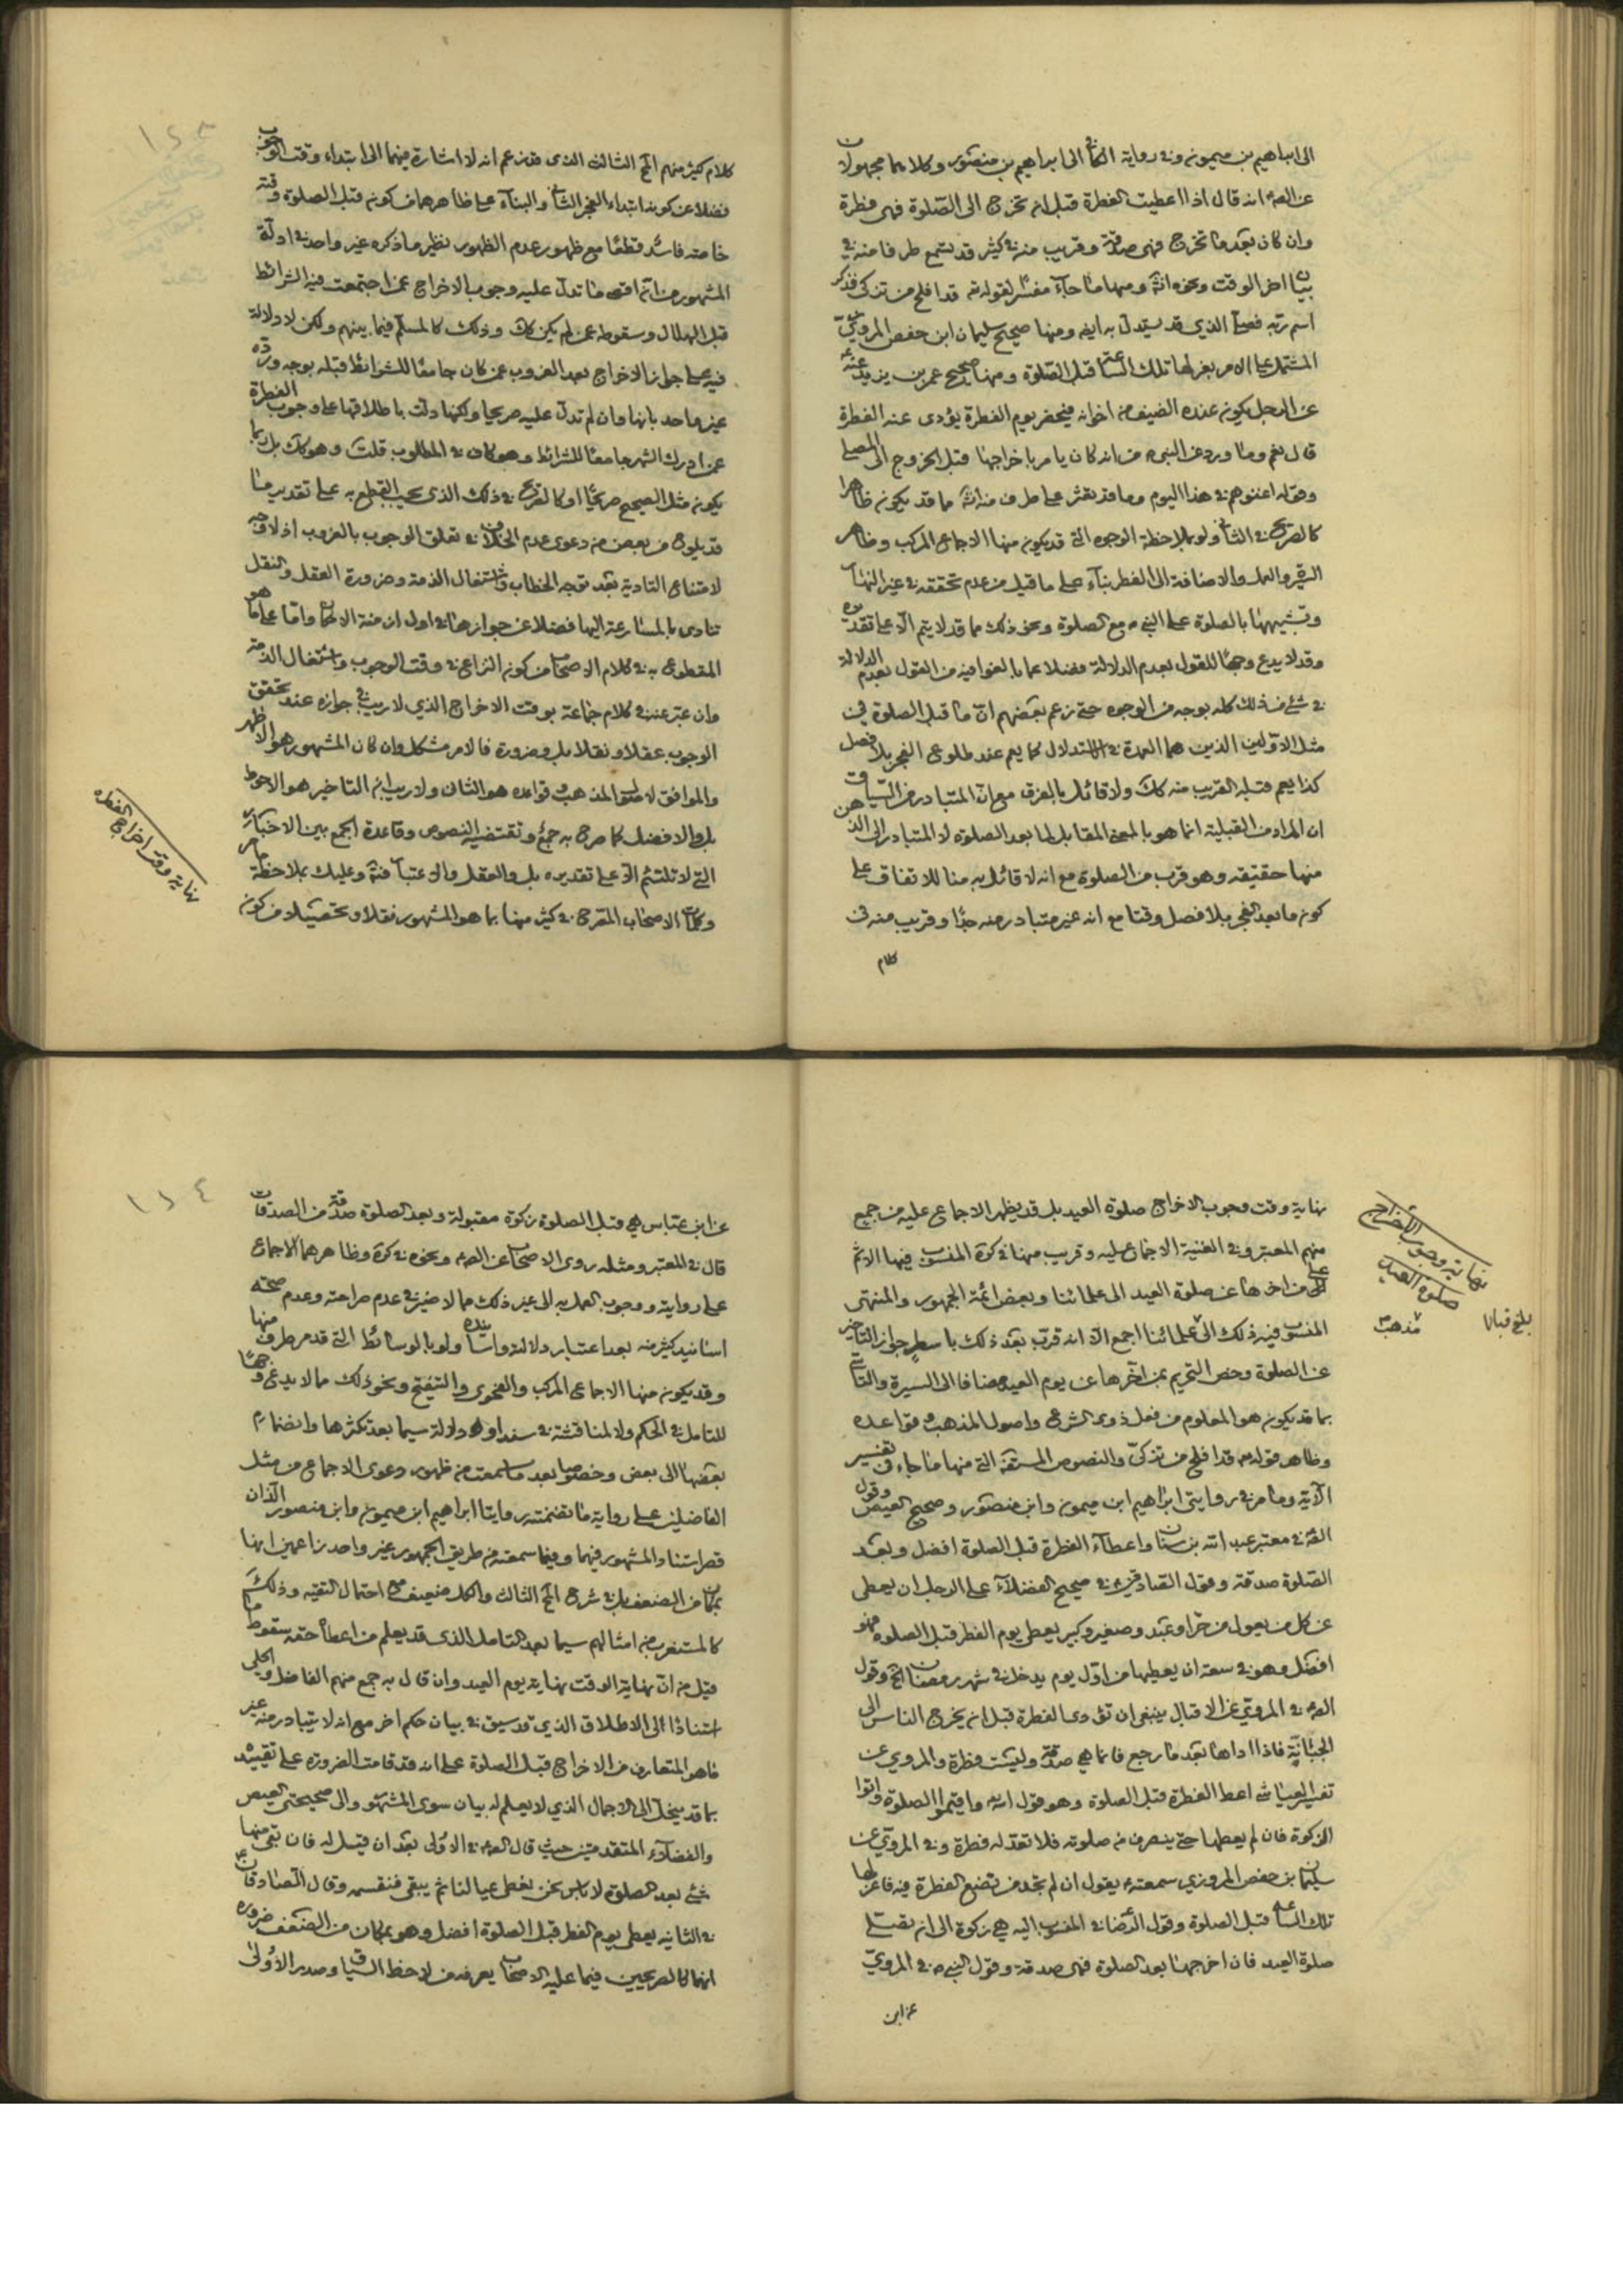 الى ابراهيم بن ميمونه وفى رواية الى ابراهيم بن منصور وكلاهما مجهولان
انه قال اذا اعطيت الفطرة قبل ان تخرج الى الصلوة فهى فطرة
وان كان بعد ما تخرج فهى صدقة وقريب منه كثير قد يستمع طرفا منه فى
بيان اخر الوقت ونحوه ومنها ما جآء مفسر لقوله تعـ قد افلح من تزكى فذكر
اسم ربه فصلى الذي قد يستدل به ايضا ومنها صحيح سليمان ابن حفص المروى
المشتمل على الامر بعزلها تلك الساعة قبل الصلوة ومنها صحيح عمر بن يزيد
عن الرجل يكون عنده الضيف من اخوانه فيحضر يوم الفطرة يؤدى عنه الفطرة
قال نعم وما ورد عن النبى من انه كان يامر باخراجها قبل الخروج الى المصلى
وقوله اغنوهم فى هذا اليوم وما قد يعثر على طرف منه مما قد يكون ظاهرا
ولو بملاحظة الوجوه التى قد يكون منها الاجماع المركب وظاهر
والاضافة الى الفطر بنآء على ما قيل من عدم تحققه فى غير النهار
وتشبيهها بالصلوة على النبى مع الصلوة ونحو ذلك مما قد لا يتم الا على تقديره
وقد لا يدع وجها للقول بعدم الدلالة فضلا عما بالغوا فيه من القول بعدم الدلالة
فى شئ من ذلك كله بوجه من الوجوه حتى زعم بعضهم ان ما قبل الصلوة فى
مثل الاولين الذين هما العمدة فى الاستدلال كما يعم عند طلوع الفجر بلا فصل
كذا يعم قبله القريب منه كك ولا قائل بالفرق مع ان المتبادر من السياق
ان المراد من القبلية انما هو بالمعنى المقابل لما بعد الصلوة لا المتبادر الى الذهن
منها حقيقة وهو قرب من الصلوة مع انه لا قائل به منا للاتفاق على
كون ما بعد الفجر بلا فصل وقتا مع انه غير متبادر منه جدا وقريب منه فى
كلام
كلام كثير منهم الشيخ الثالث الذى قد زعم انه لا اشارة فيهما الى ابتداء وقت الوجوب
فضلا عن كونه ابتداء الفجر الثانى والبنآء على ظاهرهما من كونه قبل الصلوة وقته
خاصة فاسد قطعا مع ظهور عدم الظهور نظير ما ذكره غير واحد فى ادلة
المشهور من انه اقصى ما تدل عليه وجوب الاخراج عمن اجتمعت فيه الشرائط
قبل الهلال وسقوطه عمن لم يكن كك وذلك كالمسلم فيما بينهم ولكن لا دلالة
فيه على جواز الاخراج بعد الغروب عمن كان جامعا للشرائط قبله بوجه ورده
غير واحد بانها وان لم تدل عليه صريحا ولكنها دلت باطلاقها على وجوب الفطرة
عمن ادرك الشهر جامعا للشرائط وهو كاف فى المطلوب قلت وهو كك بل ربما
يكون مثل الصحيح صريحا او كالصريح فى ذلك الذى يجب القطع به على تقدير ما
قد يلوح من بعض من دعوى عدم الخلاف فى تعلق الوجوب بالغروب اذ لا وجه
لامتناع التادية بعد توجه الخطاب واشتغال الذمة وضرورة العقل والنقل
تنادى بالمسارعة اليها فضلا عن جوازها فى اول ازمنة الامكان واما على ما هو
المقطوع به فى كلام الاصحاب من كون النزاع فى وقت الوجوب واشتغال الذمة
وان عبر عنه فى كلام جماعة بوقت الاخراج الذي لا ريب فى جوازه عند تحقق
الوجوب عقلا ونقلا بل وضرورة فالامر مشكل وان كان المشهور هو الاظهر
والموافق لاصول المذهب وقواعده هو الثانى ولا ريب ان التاخير هو الاحوط
بل والافضل كما صرح به جمع وتقتضيه النصوص وقاعدة الجمع بين الاخبار
التى لا تلتئم الا على تقديره بل والعقل والاعتبار وعليك بملاحظة
وكلمات الاصحاب المصرح فى كثير منها بما هو المشهور نقلا وتحصيلا من كون
نهاية وقت اخراج الفطرة
١٥٣
نهاية وقت وجوب الاخراج صلوة العيد بل قد يظهر الاجماع عليه من جمع
منهم المعتبر وفى الغنية الاجماع عليه وقريب منها التذكرة المنسوب فيها الاثم
على من اخرها عن صلوة العيد الى علمائنا وبعض ائمة الجمهور والمنتهى
المنسوب فيه ذلك الى علمائنا اجمع الا انه قرب بعد ذلك باسطر جواز التاخير
عن الصلوة وخص التحريم بمن اخرها عن يوم العيد مضافا الى السيرة والتاسى
بما قد يكون هو المعلوم من فعل ذوى الشرع واصول المذهب وقواعده
وظاهر قوله تعـ قد افلح من تزكى والنصوص المستفيضة التى منها ما جاء فى تفسير
الآية وما مر فى روايتى ابراهيم ابن ميمون وابن منصور وصحيح العيص وقول
فى معتبر عبد الله بن سنان واعطآء الفطرة قبل الصلوة افضل وبعد
الصلوة صدقة وقول الصادقين فى صحيح الفضلآء على الرجل ان يعطى
عن كل من يعول من حر او عبد وصغير وكبير يعطى يوم الفطر قبل الصلوة فهو
افضل وهو فى سعة ان يعطيها من اول يوم يدخل فى شهر رمضان الخ وقول
فى المروي عن الاقبال ينبغى ان تؤدى الفطرة قبل ان يخرج الناس الى
الجبانة فاذا اداها بعد ما رجع فانما هي صدقة وليست فطرة والمروي عن
تفسير العياشى اعط الفطرة قبل الصلوة وهو قول الله واقيموا الصلوة واتوا
الزكوة فان لم يعطها حتى ينصرف من صلوته فلا تعد له فطرة وفى المروي عن
سليمان بن حفص المروزي سمعته يقول ان لم تجد من تضع الفطرة فيه فاعزلها
تلك الساعة قبل الصلوة وقول الرضا فى المنسوب اليه هي زكوة الى ان تصلى
صلوة العيد فان اخرجها بعد الصلوة فهى صدقة وقول النبى فى المروي
عن ابن
نهاية وجوب الاخراج
صلوة العيد
مذهب
بلغ قبالا
١٥٤
عن ابن عباس هي قبل الصلوة زكوة مقبولة وبعد الصلوة صدقة من الصدقات
قال فى المعتبر ومثله روى الاصحاب عن ونحوه التذكرة وظاهرهما الاجماع
على روايته ووجوب العمل به الى غير ذلك مما لا ضير فى عدم صراحته وعدم صحة
اسانيد كثير منه بعد اعتبار دلالة واسناده ولو بالوسائط التى قد مر طرف منها
وقد يكون منها الاجماع المركب والفحوى والتنقيح ونحو ذلك مما لا يدع وجها
للتامل فى الحكم ولا لمناقشة فى سند او دلالة سيما بعد تكثرها وانضمام
بعضها الى بعض وخصوصا بعد ما سمعت من ظهور دعوى الاجماع من مثل
الفاضلين على رواية ما تضمنته روايتا ابراهيم ابن ميمون وابن منصور الذان
قصر استناد المشهور فيهما وفيما سمعته من طريق الجمهور غير واحد زاعمين انها
بمكان من الضعف بل فى شرح الشيخ الثالث والكل ضعيف مع احتمال التقية وذلك
كالمستغرب من امثالهم سيما بعد التامل الذى قد يعلم من اعطا حقه سقوط ما
قيل من ان نهاية الوقت نهاية يوم العيد وان قال به جمع منهم الفاضل والحلى
استنادا الى الاطلاق الذي قد سيق فى بيان حكم اخر مع انه لا يتبادر منه غير
ما هو المتعارف من الاخراج قبل الصلوة على انه قد قامت الضرورة على تقييده
بما قد ينحل الى الاجمال الذي لا يعلم له بيان سوى المشهور والى صحيحتى العيص
والفضلآء المتقدمتين حيث قال فى الاولى بعد ان قيل له فان بقى منها
شئ بعد الصلوة لا باس نحن نعطى عيالنا ثم يبقى فنقسمه وقال الصادقان
فى الثانية يعطى يوم الفطر قبل الصلوة افضل وهو بمكان من الضعف ضرورة
انهما كالصريحين فيما عليه الاصحاب يعرفه من لاحظ السياق وصدر الاولى